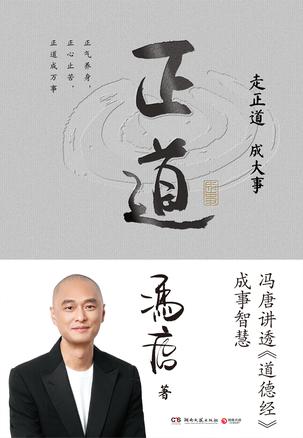 正气养身，
正心止苦，
正道成万事
正道
走正道 成大事
成事
冯唐讲透《道德经》
成事智慧
冯唐
著
CS
湖南文艺出版社